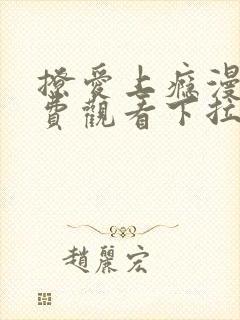 撩愛上癮漫
費觀看下拉
趙麗宏